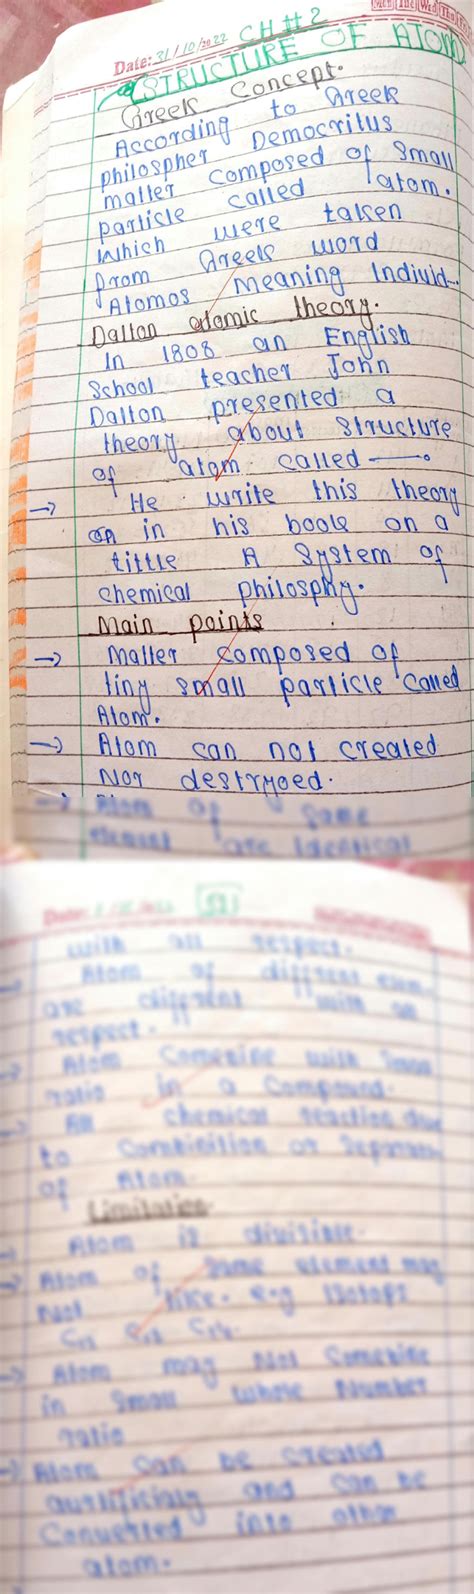 Date: 31/10/2022 CH # 2
STRUCTURE OF ATOM
Greek Concept.
According to Greek
philospher Democritus
matter composed of small
particle called atom.
Which were taken
from Greek word
Atomos Meaning Individ...
Dalton atomic theory.
In 1808 an English
School teacher John
Dalton presented a
theory about structure
of atom called —.
→ He write this theory
in his book on a
tittle A System of
chemical philosphy.
Main points
→ Matter composed of
tiny small particle called
Atom.
→ Atom can not created
Nor destryoed.
→ Atom of same
element are identical
Date:
with all respect.
Atom of different elem
are different with all
respect.
→ Atom Comenine with small
ratio in a Compound.
→ All chemical reaction due
to Combinition or separation
of Atom.
Limitation.
Atom is divisible.
→ Atom of same element may
Not like. e.g Isotops
→ Atom may Not Comenine
in small whole Number
ratio
→ Atom can be created
and can be
Converted into other
atom.